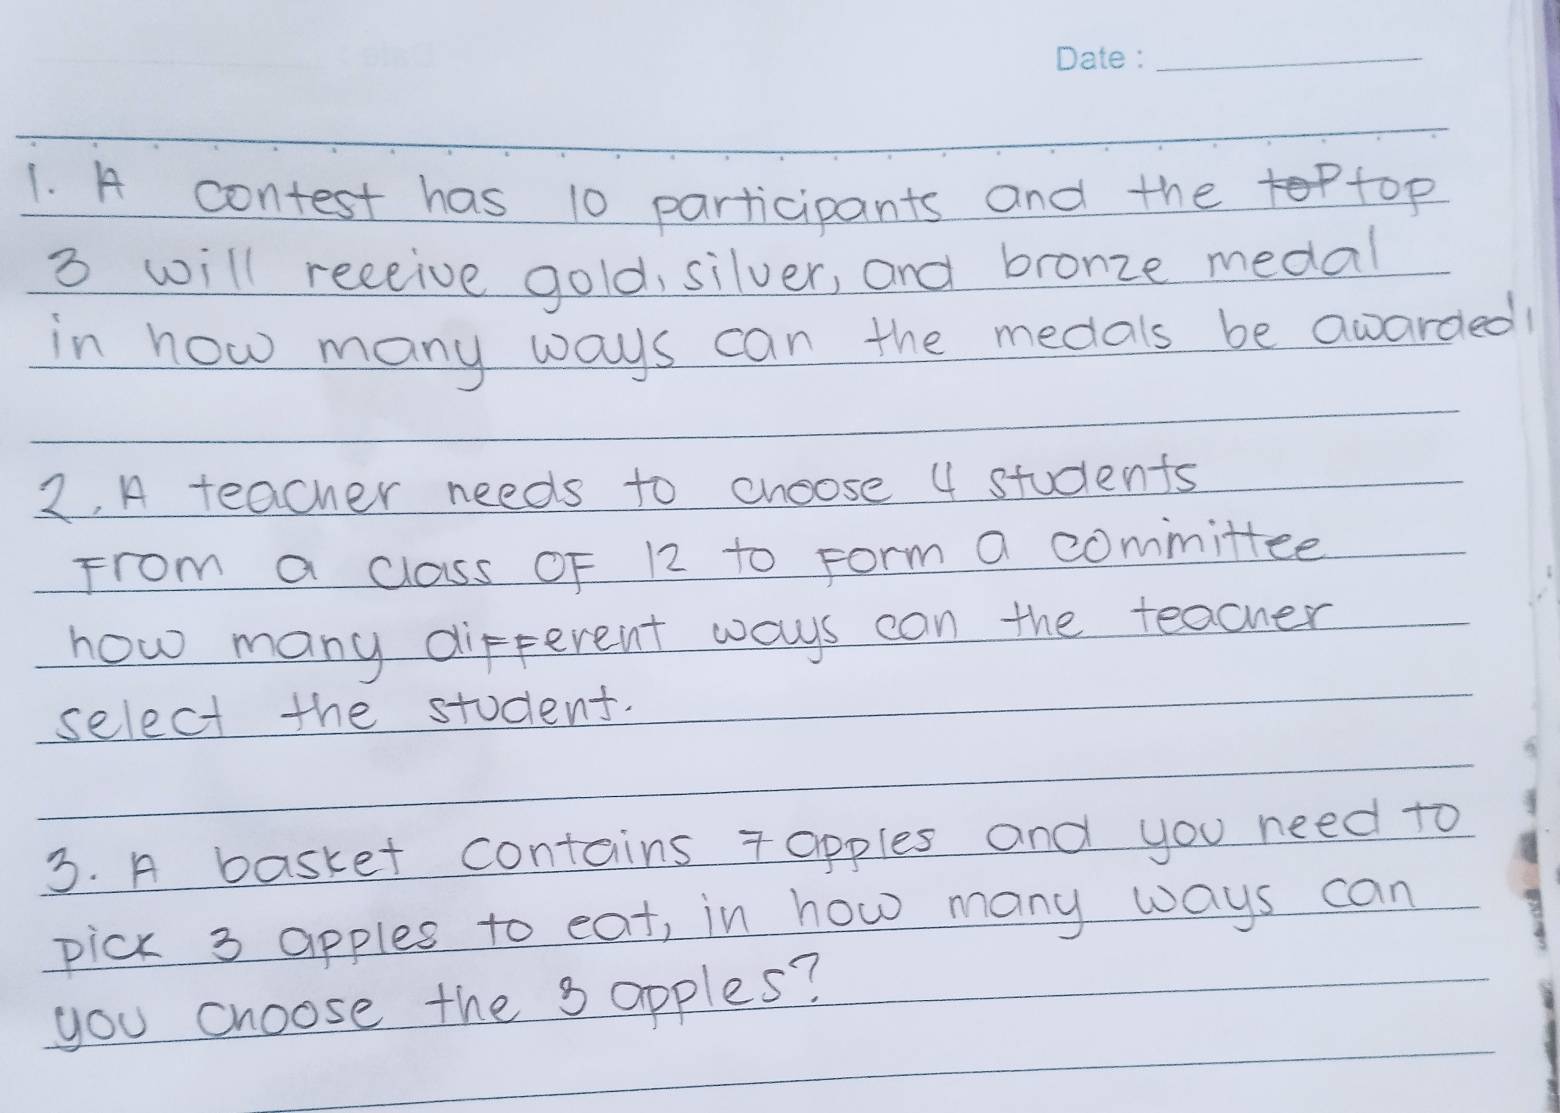 Date :
1. A contest has 10 participants and the top top
3 will receive gold, silver, and bronze medal
in how many ways can the medals be awarded
2. A teacher needs to choose 4 students
From a class OF 12 to Form a committee
how many different ways can the teacher
select the student.
3. A basket contains 7 apples and you need to
pick 3 apples to eat, in how many ways can
you choose the 3 apples?